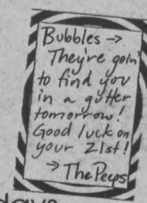 Bubbles →
They're goin'
to find you
in a gutter
tomorrow!
Good luck on
your 21st!
→ The Peeps
days